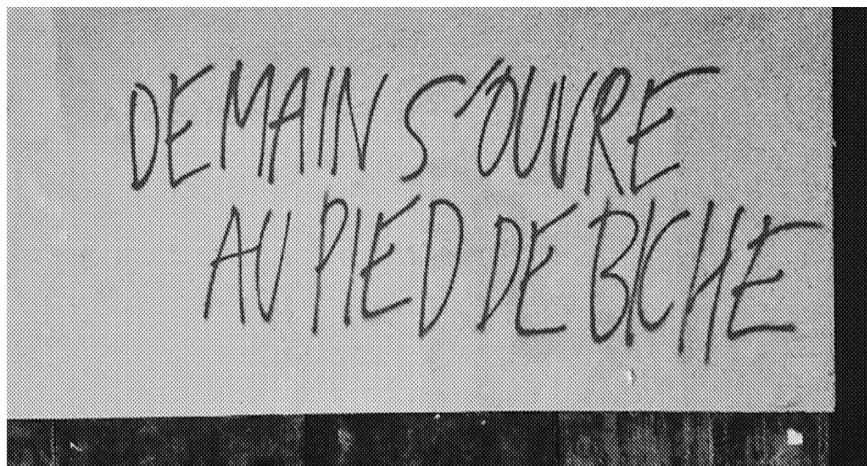 DEMAIN S'OUVRE
AU PIED DE BICHE